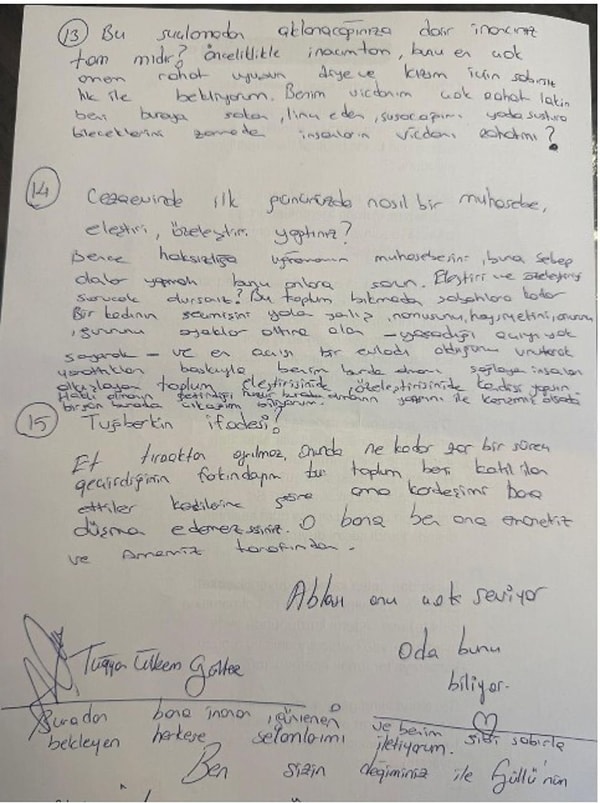 13) Bu suçlamadan aklanacağınıza dair inancınız
tam mıdır? Öncelikle inacım tam, bunu en çok
annem rahat uyusun diye ve kızım için sabırsız
lık ile bekliyorum. Benim vicdanım çok rahat lakin
beni buraya sokan, linç eden, susacağımı yada sustura
bileceklerini zanneden insanların vicdanı rahatmı?
14 Cezaevinde ilk gününüzde nasıl bir muhasebe,
eleştiri, özeleştiri yaptınız?
Bence haksızlığa uğramanın muhasebesini, buna sebep
olanlar yapmalı bunu onlara sorun. Eleştiri ve özeleştiri
sorucak olursanız? Bu toplum bıkmadı sabahlara kadar
Bir kadının geçmişini yola salıp, namusunu, haysiyetini, onurunu
, gururunu ayaklar altına alan – yaşadığı acıyı yok
sayarak – ve en acısı bir evladı olduğunu unutarak
yarattıkları baskıyla benim burda olmamı sağlayan insanları
alkışlayan toplum eleştirisinide, özeleştirisinide kendisi yapsın.
Haklı olmanın getirdiği huzur burada
birgün burada çıkacağımı biliyorum.
15 Tuğberkin ifadesi!
Et tırnaktan ayrılmaz, Onunda ne kadar zor bir süreç
geçirdiğinin farkındayım bu toplum beni katil ilan
ettiler kendilerine göre ama kardeşimi bana
düşman edemezsiniz. O bana ben ona emanetiz
ve Annemiz tarafından.
Ablası onu çok seviyor
Oda bunu
biliyor.
Tuğyan Ülkem Gülter
Buradan bana inanan, güvenen ve benim
bekleyen herkese selamlarımı iletiyorum. sizi sabırla
Ben sizin değiminiz ile Güllü'nün